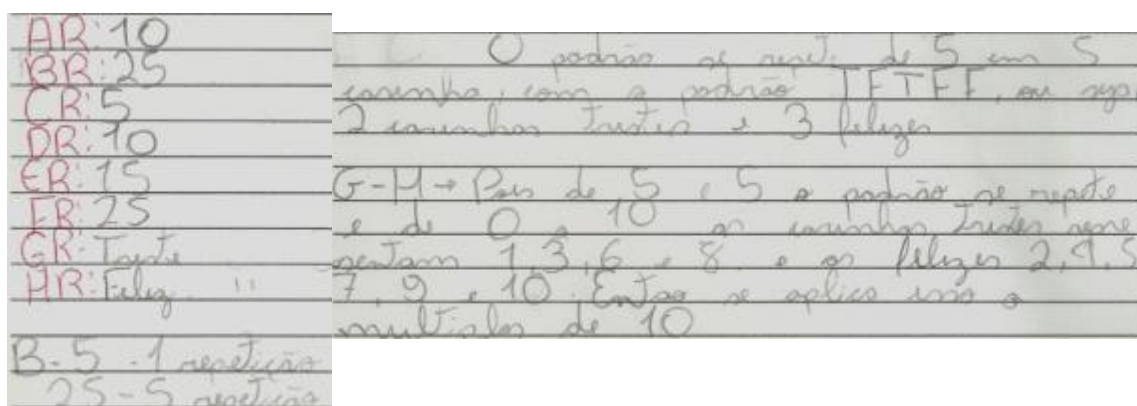 AR: 10
BR: 25
CR: 5
DR: 10
ER: 15
FR: 25
GR: Triste
HR: Feliz "
B- 5 - 1 repetição
25 - 5 repetição
O padrão se repete de 5 em 5
carinha, com o padrão TFTFF, ou seja
2 carinhas tristes e 3 felizes
G-H → Pois de 5 e 5 o padrão se repete
e de 0 a 10 as carinhas tristes repre
sentam 1, 3, 6 e 8. e as felizes 2, 4, 5
7, 9 e 10. Então se aplica isso a
multiplos de 10